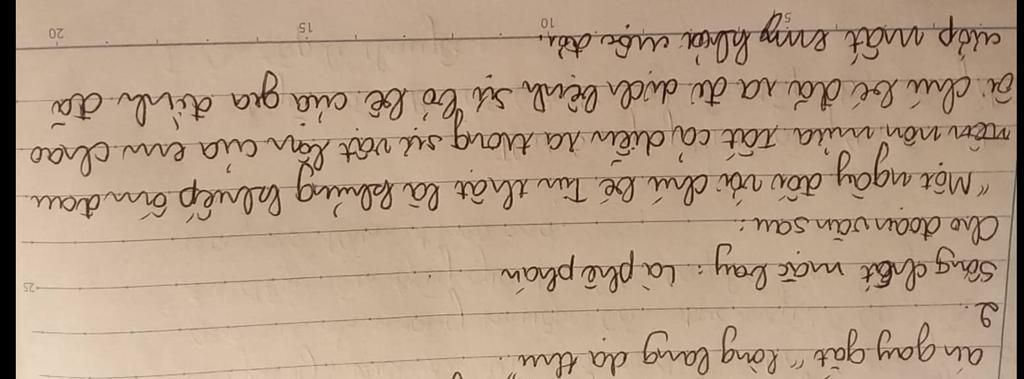 án gay gắt "lòng lang dạ thú"...
2.
Sống chết mặc bay: là phê phán
25
Cho đoạn văn sau:
"Một ngày đối với chú bé Tin thật là khủng khiếp ốm đau
nôn mửa. Tất cả diễn ra trong sự vật lộn của em chao
ôi chú bé đã ra đi dịch bệnh sự bỏ bê của gia đình đã
cướp mất em khỏi cuộc đời.
5 10 15 20